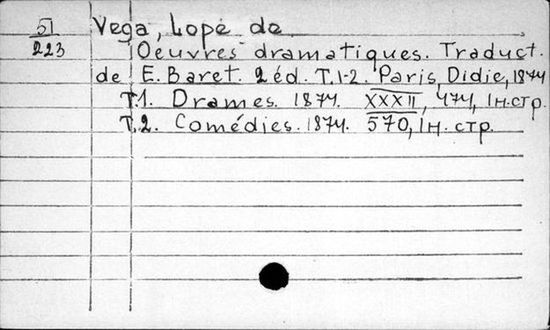 51
223
Vega, Lope de
Oeuvres dramatiques. Traduct.
de E. Baret. 2 éd. T.1-2. Paris, Didie, 1874
T.1. Drames. 1874. XXXII, 474, 1н.стр.
T.2. Comédies. 1874. 570, 1н.стр.